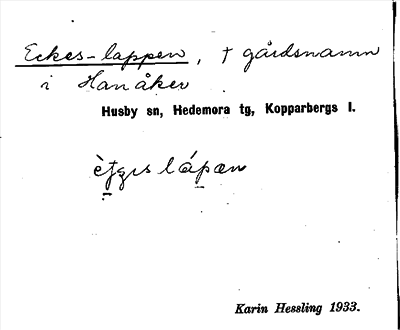 Eckes-lappen, † gårdsnamn
i Hanåker
Husby sn, Hedemora tg, Kopparbergs l.
lápæn
Karin Hessling 1933.